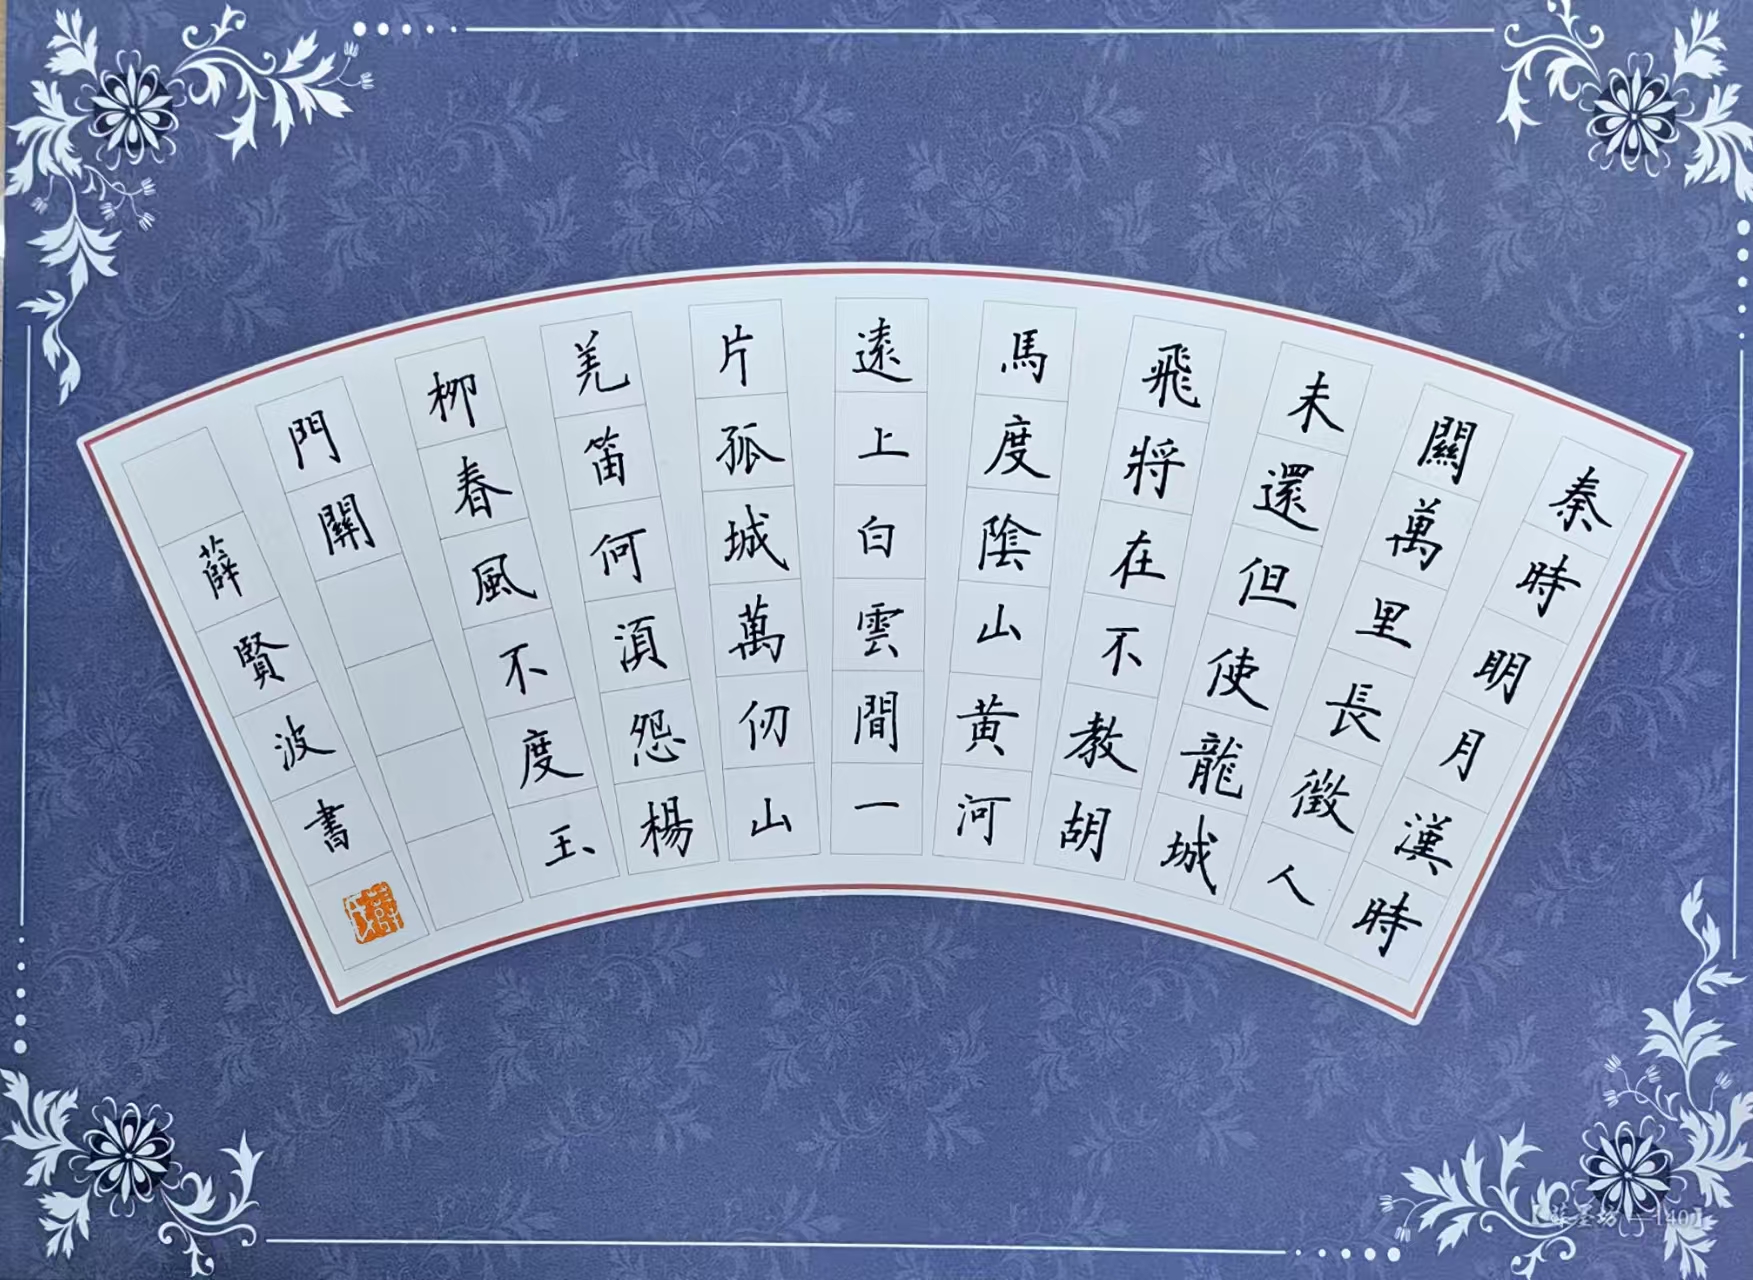 秦時明月漢時
關萬里長徵人
未還但使龍城
飛將在不教胡
馬度陰山黄河
遠上白雲間一
片孤城萬仞山
羌笛何湏怨楊
柳春風不度玉
門關
薛賢波書